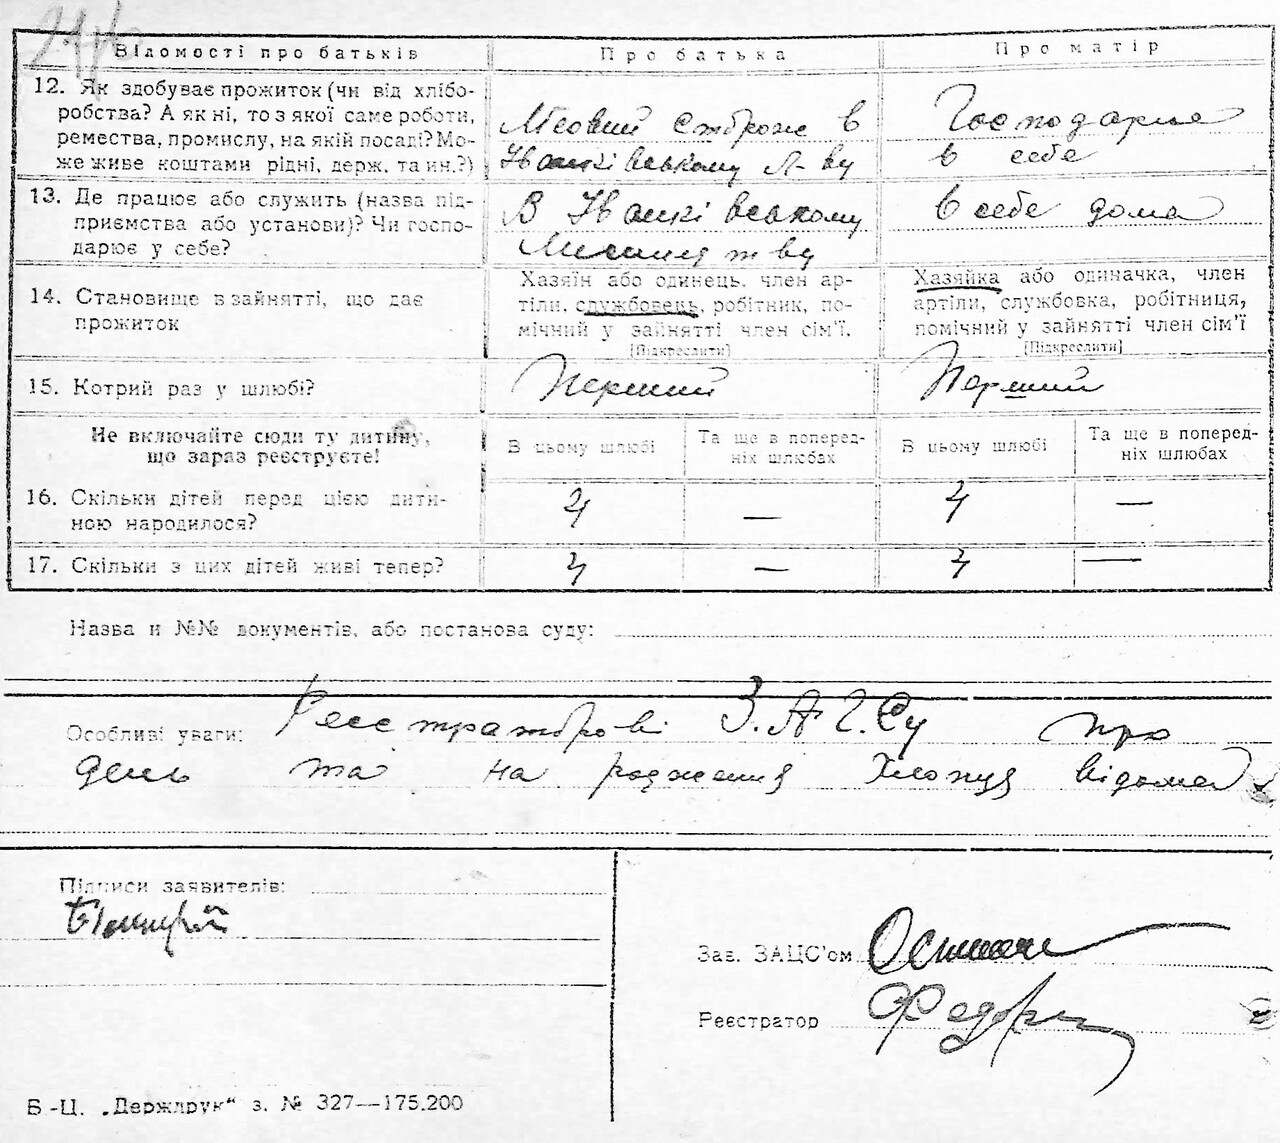 Відомості про батьків
Про батька
Про матір
12. Як здобуває прожиток (чи від хлібо-
робства? А як ні, то з якої саме роботи,
ремества, промислу, на якій посаді? Мо-
же живе коштами рідні, держ. та ин.?)
Лісовий сторож в
Іванківському Л-ву
Господарює
в себе
13. Де працює або служить (назва під-
приємства або установи)? Чи госпо-
дарює у себе?
В Іванківському
Лісництву
в себе дома
14. Становище в зайнятті, що дає
прожиток
Хазяїн або одинець, член ар-
тіли, службовець, робітник, по-
мічний у зайнятті член сім'ї.
[Підкреслити]
Хазяйка або одиначка, член
артіли, службовка, робітниця,
помічний у зайнятті член сім'ї
[Підкреслити]
15. Котрий раз у шлюбі?
Перший
Перший
Не включайте сюди ту дитину,
що зараз реєструєте!
В цьому шлюбі
Та ще в поперед-
ніх шлюбах
В цьому шлюбі
Та ще в поперед-
ніх шлюбах
16. Скільки дітей перед цією дити-
ною народилося?
4 — 4 —
17. Скільки з цих дітей живі тепер?
— —
Назва и №№ документів, або постанова суду:
Особливі уваги: Реєстраторові З.А.Г.Су про
день та на родження хлопця відома
Підписи заявителів:
Зав. ЗАЦС'ом
Реєстратор
Б-Ц. „Держдрук“ з. № 327—175.200